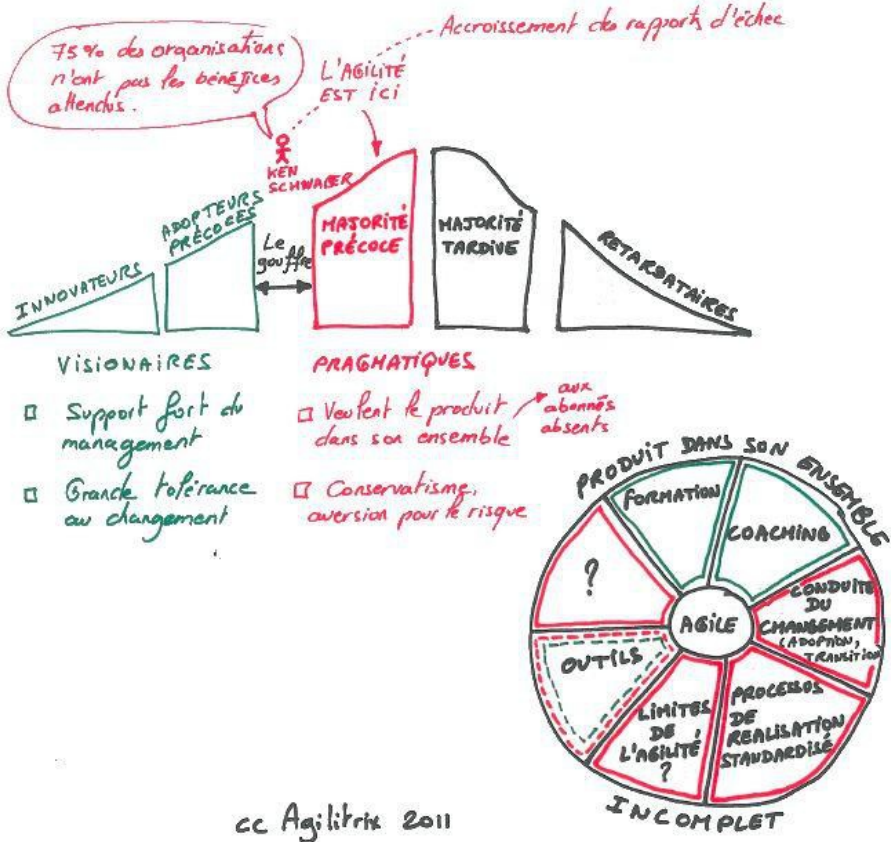 75% des organisations
n'ont pas les bénéfices
attendus.
Accroissement des rapports d'échec
L'AGILITÉ
EST ICI
KEN
SCHWABER
INNOVATEURS
ADOPTEURS
PRÉCOCES
Le
gouffre
MAJORITÉ
PRÉCOCE
MAJORITÉ
TARDIVE
RETARDATAIRES
VISIONAIRES
Support fort du
management
Grande tolérance
au changement
PRAGMATIQUES
Veulent le produit
dans son ensemble
aux
abonnés
absents
Conservatisme,
aversion pour le risque
PRODUIT DANS SON ENSEMBLE
FORMATION
COACHING
CONDUITE
DU
CHANGEMENT
(ADOPTION,
TRANSITION)
PROCESSUS
DE
REALISATION
STANDARDISÉ
LIMITES
DE
L'AGILITÉ
?
OUTILS
?
AGILE
INCOMPLET
cc Agilitrix 2011